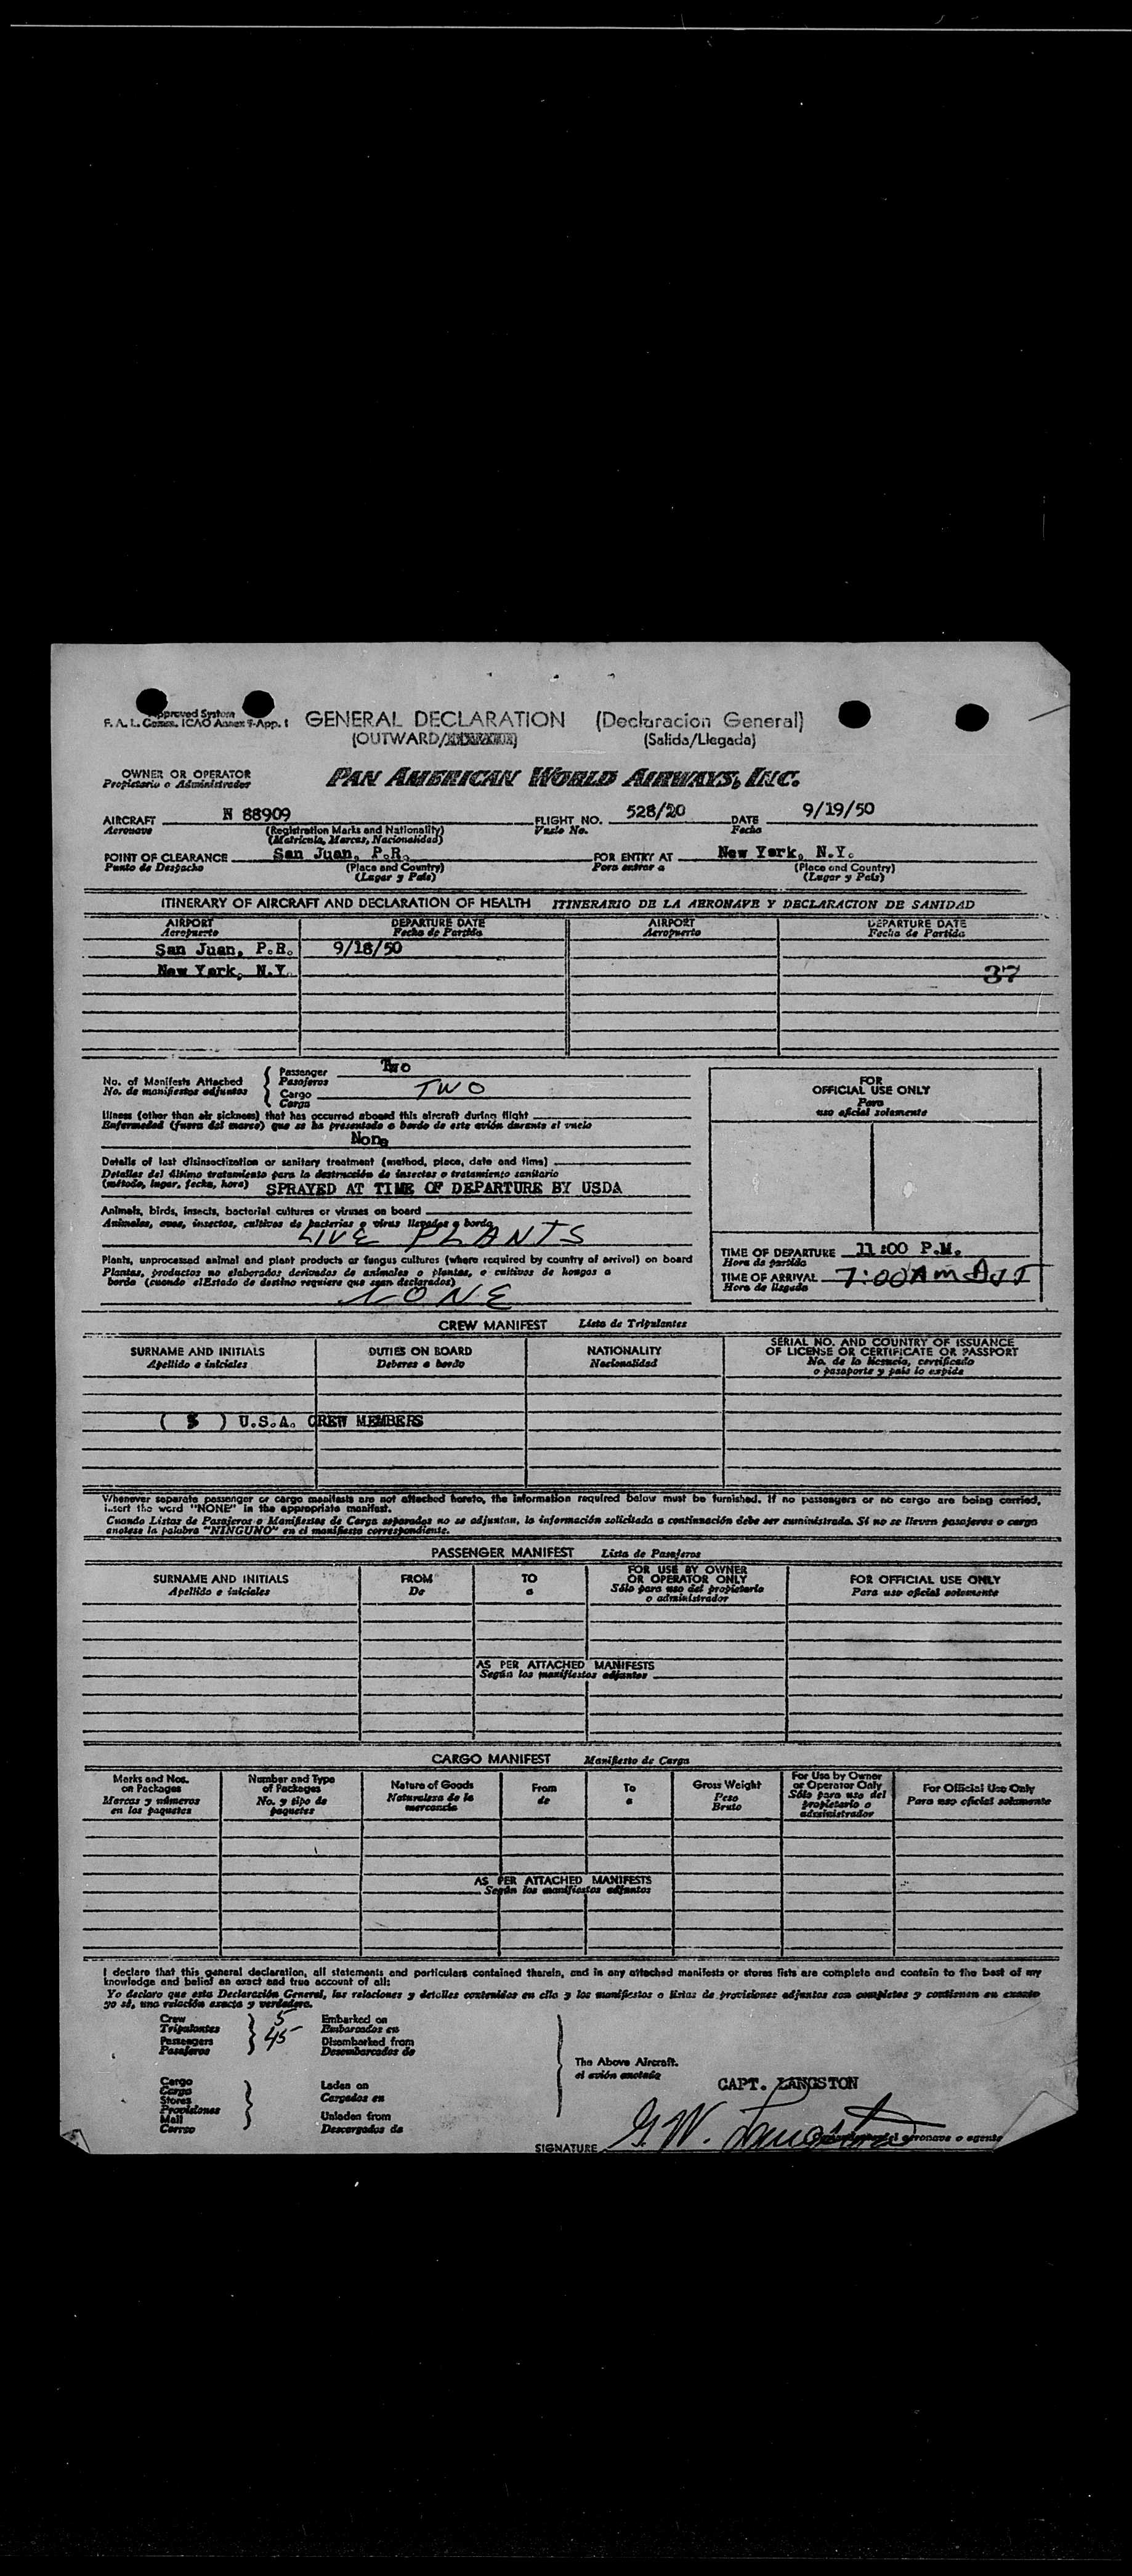 Approved System
F. A. L. Comm. ICAO Annex 9-App. 1
GENERAL DECLARATION (Declaracion General)
(OUTWARD/ (Salida/Llegada)
OWNER OR OPERATOR
Propietario o Administrador
PAN AMERICAN WORLD AIRWAYS, INC.
AIRCRAFT N 88909 FLIGHT NO. 528/20 DATE 9/19/50
Aeronave (Registration Marks and Nationality) Vuelo No. Fecha
(Matricula, Marcas, Nacionalidad)
POINT OF CLEARANCE San Juan, P.R. FOR ENTRY AT New York, N.Y.
Punto de Despacho (Place and Country) Para entrar a (Place and Country)
(Lugar y País) (Lugar y País)
ITINERARY OF AIRCRAFT AND DECLARATION OF HEALTH ITINERARIO DE LA AERONAVE Y DECLARACION DE SANIDAD
AIRPORT DEPARTURE DATE AIRPORT DEPARTURE DATE
Aeropuerto Fecha de Partida Aeropuerto Fecha de Partida
San Juan, P.R. 9/18/50
New York, N.Y. 37
No. of Manifests Attached
No. de manifiestos adjuntos
Passenger Two
Pasajeros
Cargo TWO
Carga
Illness (other than air sickness) that has occurred aboard this aircraft during flight
Enfermedad (fuera del mareo) que se ha presentado a bordo de este avión durante el vuelo
None
Details of last disinsectization or sanitary treatment (method, place, date and time)
Detalles del último tratamiento para la destrucción de insectos o tratamiento sanitario
(método, lugar, fecha, hora) SPRAYED AT TIME OF DEPARTURE BY USDA
Animals, birds, insects, bacterial cultures or viruses on board
Animales, aves, insectos, cultivos de bacterias o virus llevados a bordo
LIVE PLANTS
Plants, unprocessed animal and plant products or fungus cultures (where required by country of arrival) on board
Plantas, productos no elaborados derivados de animales o plantas, o cultivos de hongos a
borda (cuando el Estado de destino requiere que sean declarados)
NONE
FOR
OFFICIAL USE ONLY
Para
uso oficial solamente
TIME OF DEPARTURE 11:00 P.M.
Hora de partida
TIME OF ARRIVAL 7:00 AM
Hora de llegada
CREW MANIFEST Lista de Tripulantes
SURNAME AND INITIALS DUTIES ON BOARD NATIONALITY SERIAL NO. AND COUNTRY OF ISSUANCE
OF LICENSE OR CERTIFICATE OR PASSPORT
Apellido e iniciales Deberes a bordo Nacionalidad No. de la licencia, certificado
o pasaporte y país lo expide
( 5 ) U.S.A. CREW MEMBERS
Whenever separate passenger or cargo manifests are not attached hereto, the information required below must be furnished. If no passengers or no cargo are being carried,
insert the word "NONE" in the appropriate manifest.
Cuando Listas de Pasajeros o Manifiestos de Carga separados no se adjuntan, la información solicitada a continuación debe ser suministrada. Si no se lleven pasajeros o carga
anotese la palabra "NINGUNO" en el manifiesto correspondiente.
PASSENGER MANIFEST Lista de Pasajeros
SURNAME AND INITIALS FROM TO FOR USE BY OWNER
OR OPERATOR ONLY FOR OFFICIAL USE ONLY
Apellido e iniciales De a Sólo para uso del propietario
o administrador Para uso oficial solamente
AS PER ATTACHED MANIFESTS
Según los manifiestos adjuntos
CARGO MANIFEST Manifiesto de Carga
Marks and Nos.
on Packages
Marcas y números
en los paquetes
Number and Type
of Packages
No. y tipo de
paquetes
Nature of Goods
Naturaleza de la
mercancía
From
de
To
a
Gross Weight
Peso
Bruto
For Use by Owner
or Operator Only
Sólo para uso del
propietario o
administrador
For Official Use Only
Para uso oficial solamente
AS PER ATTACHED MANIFESTS
Según los manifiestos adjuntos
I declare that this general declaration, all statements and particulars contained therein, and in any attached manifests or stores lists are complete and contain to the best of my
knowledge and belief an exact and true account of all:
Yo declaro que esta Declaración General, las relaciones y detalles contenidos en ella y los manifiestos o listas de provisiones adjuntos son completos y contienen en cuanto
yo sé, una relación exacta y verdadera.
Crew 5 Embarked on
Tripulantes Embarcados en
Passengers 45 Disembarked from
Pasajeros Desembarcados de
The Above Aircraft.
el avión anotado
Cargo Laden on
Carga Cargados en
Stores
Provisiones
Mail Unladen from
Correo Descargados de
CAPT. LANGSTON
SIGNATURE G.W. Langston
del aeronave o agente